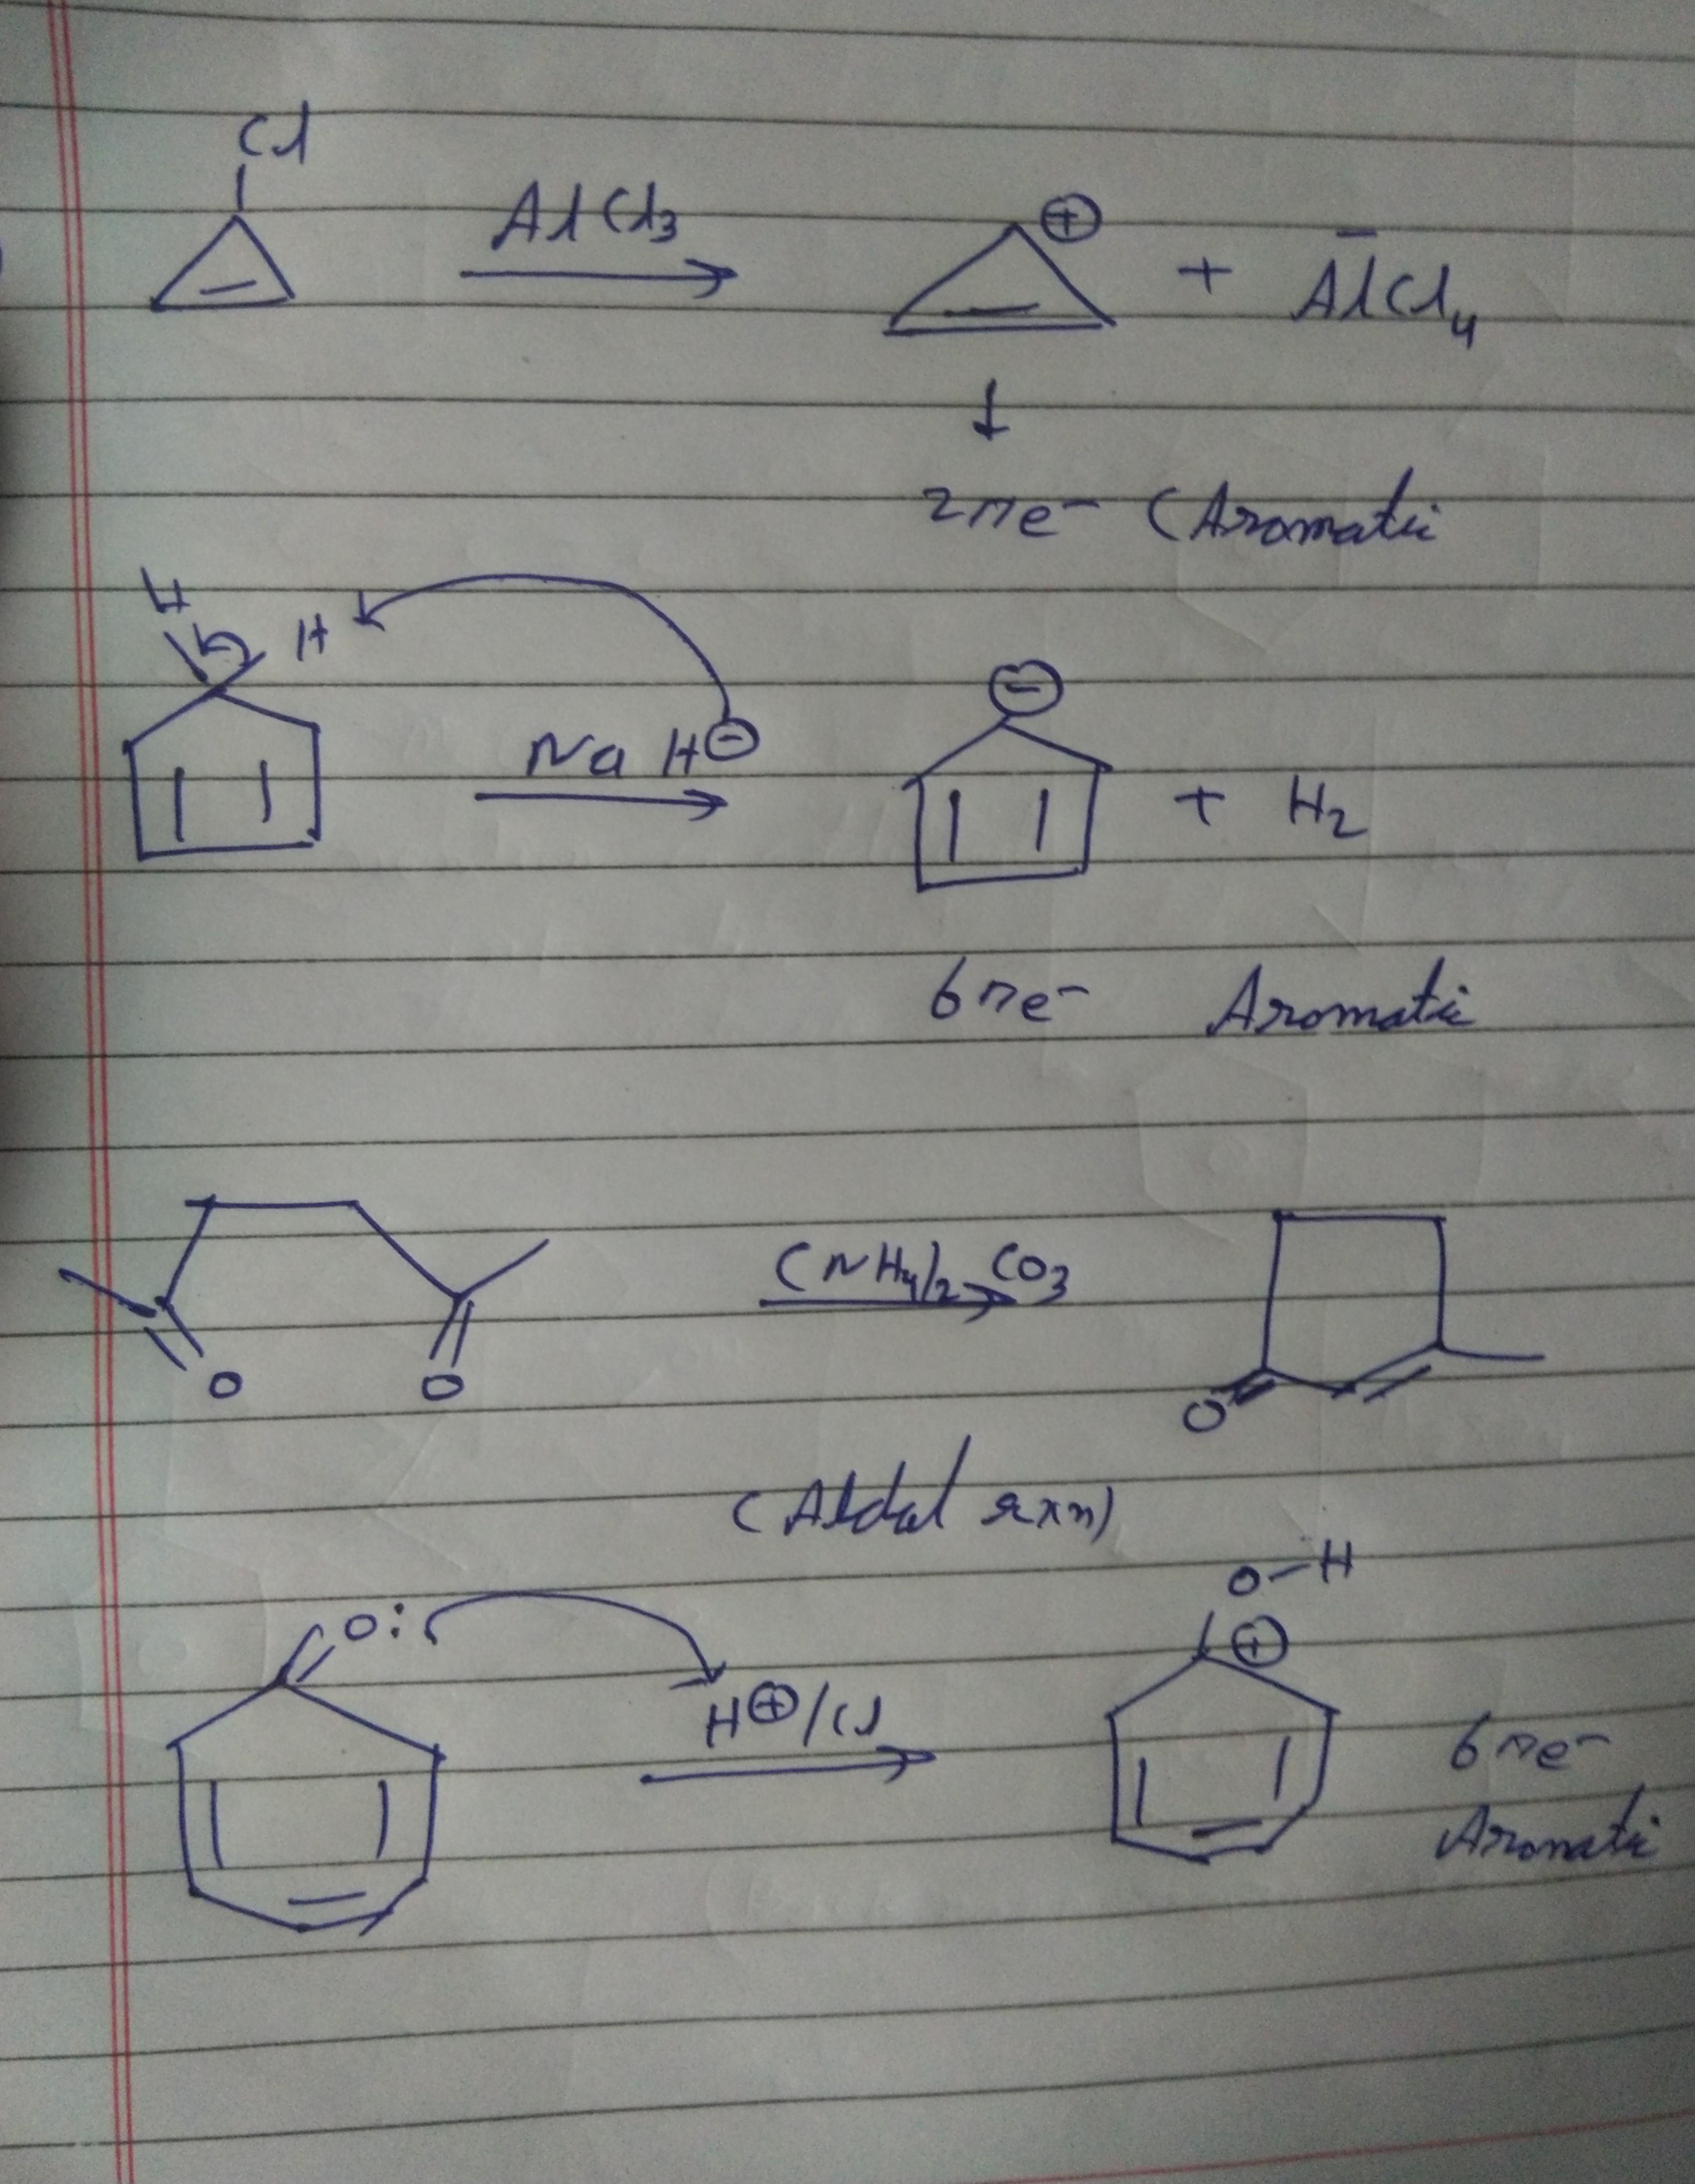 Cl
AlCl3 ⊕ + A̅lCl4
↓
2πe⁻ (Aromatic
H H
Na H⊖ ⊖ + H2
6πe⁻ Aromatic
(NH4)2 CO3
O O O
(Aldol rxn)
O-H
O: ⊕
H⊕/Cl 6πe⁻
Aromatic